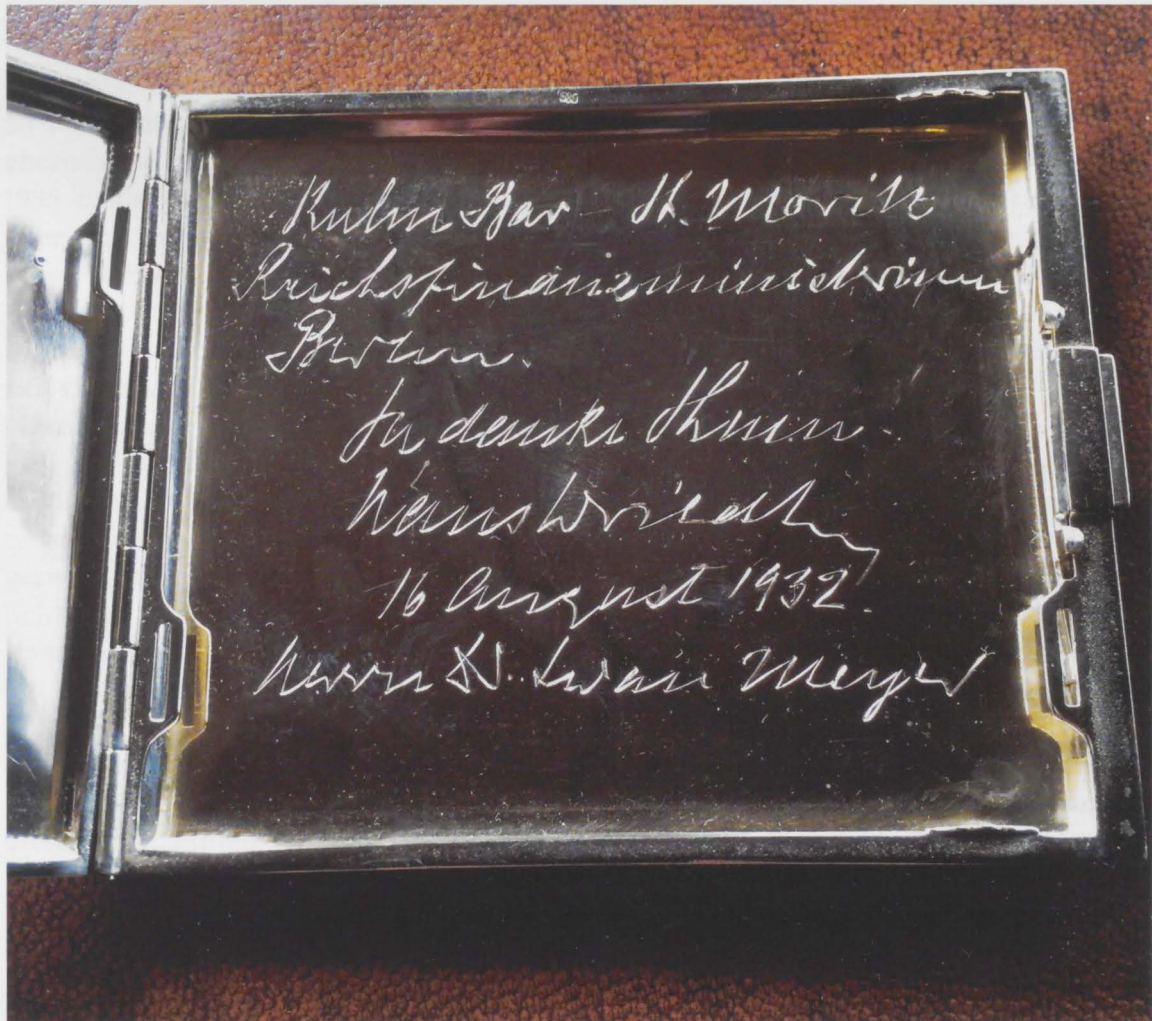 585
Kulm Bar – St. Moritz
Reichsfinanzministerium
Berlin.
Ich danke Ihnen
Hans Wriedt
16 August 1932.
Herrn Dr. Iwan Meyer